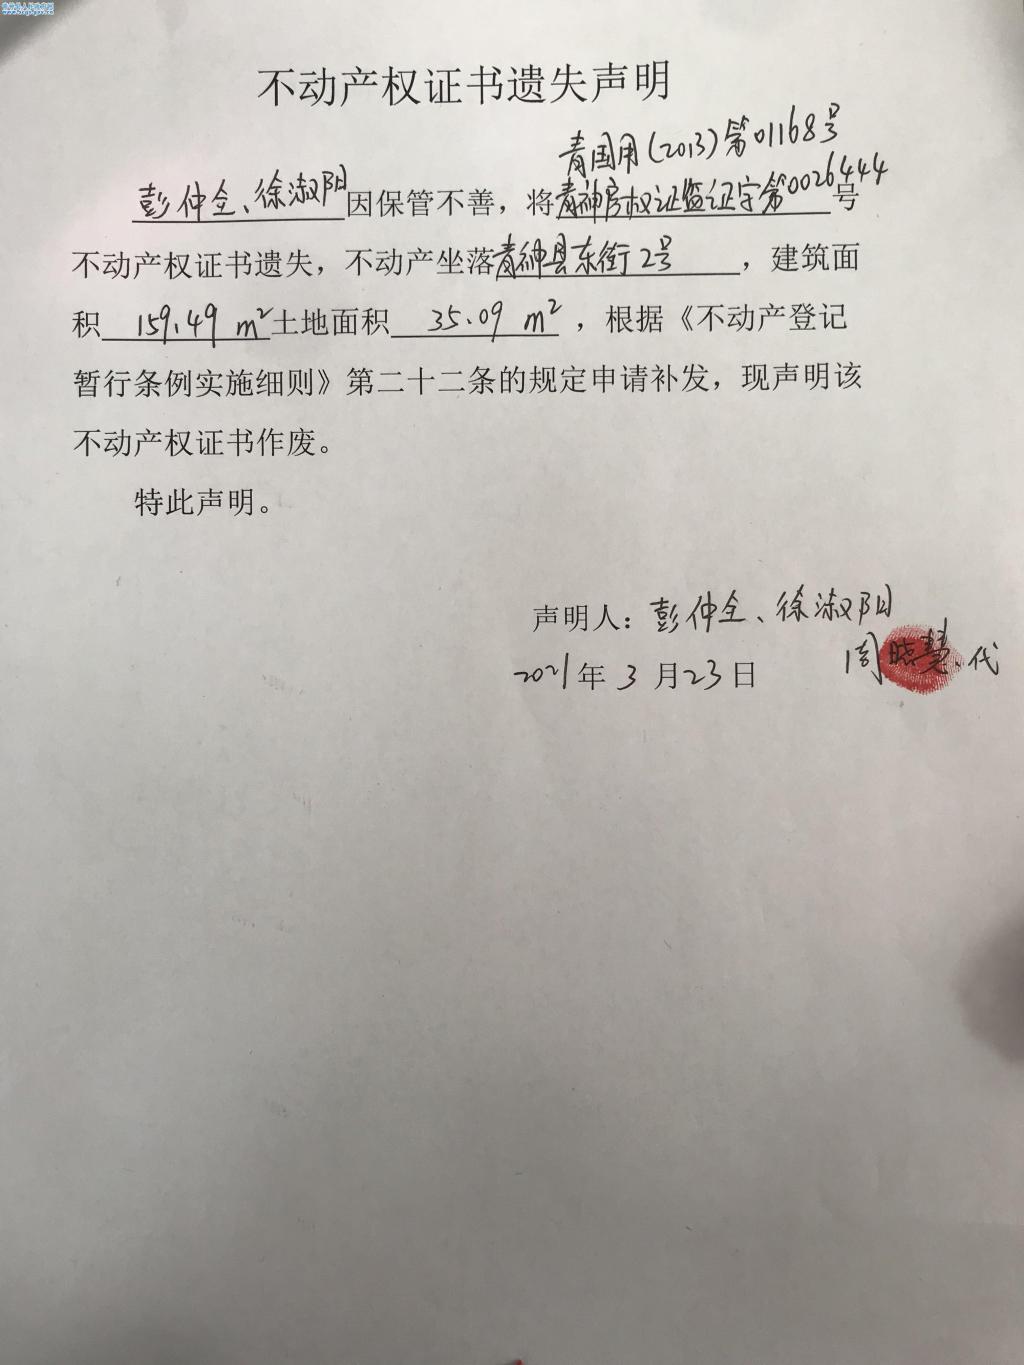 不动产权证书遗失声明
青国用(2013)第01168号
彭仲全、徐淑阳因保管不善，将青神房权证监证字第0026444号
不动产权证书遗失，不动产坐落青神县东街2号，建筑面
积 159.49 m²土地面积 35.09 m²，根据《不动产登记
暂行条例实施细则》第二十二条的规定申请补发，现声明该
不动产权证书作废。
特此声明。
声明人：彭仲全、徐淑阳
周晓慧.代
2021年 3 月23日